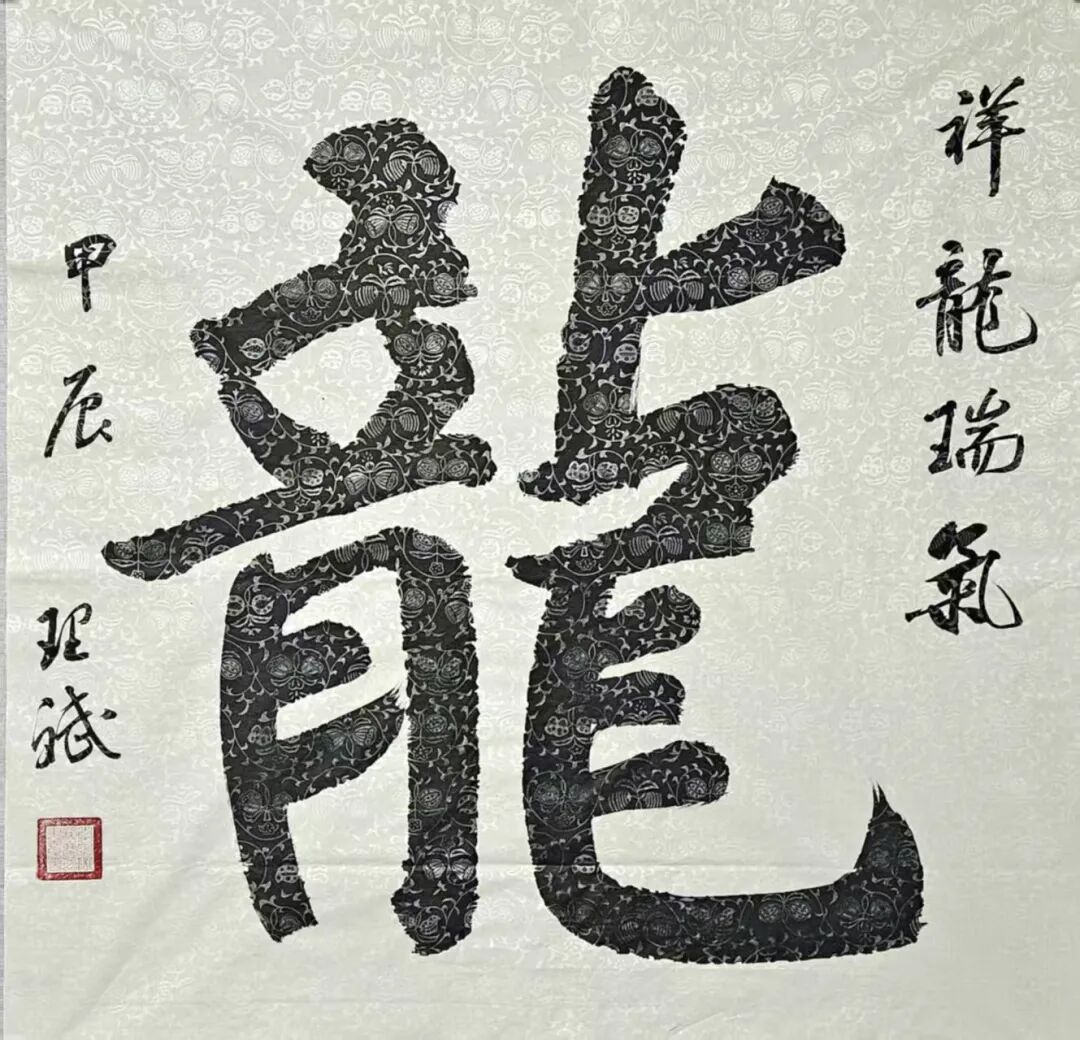 祥龍瑞氣
龍
甲辰
理斌